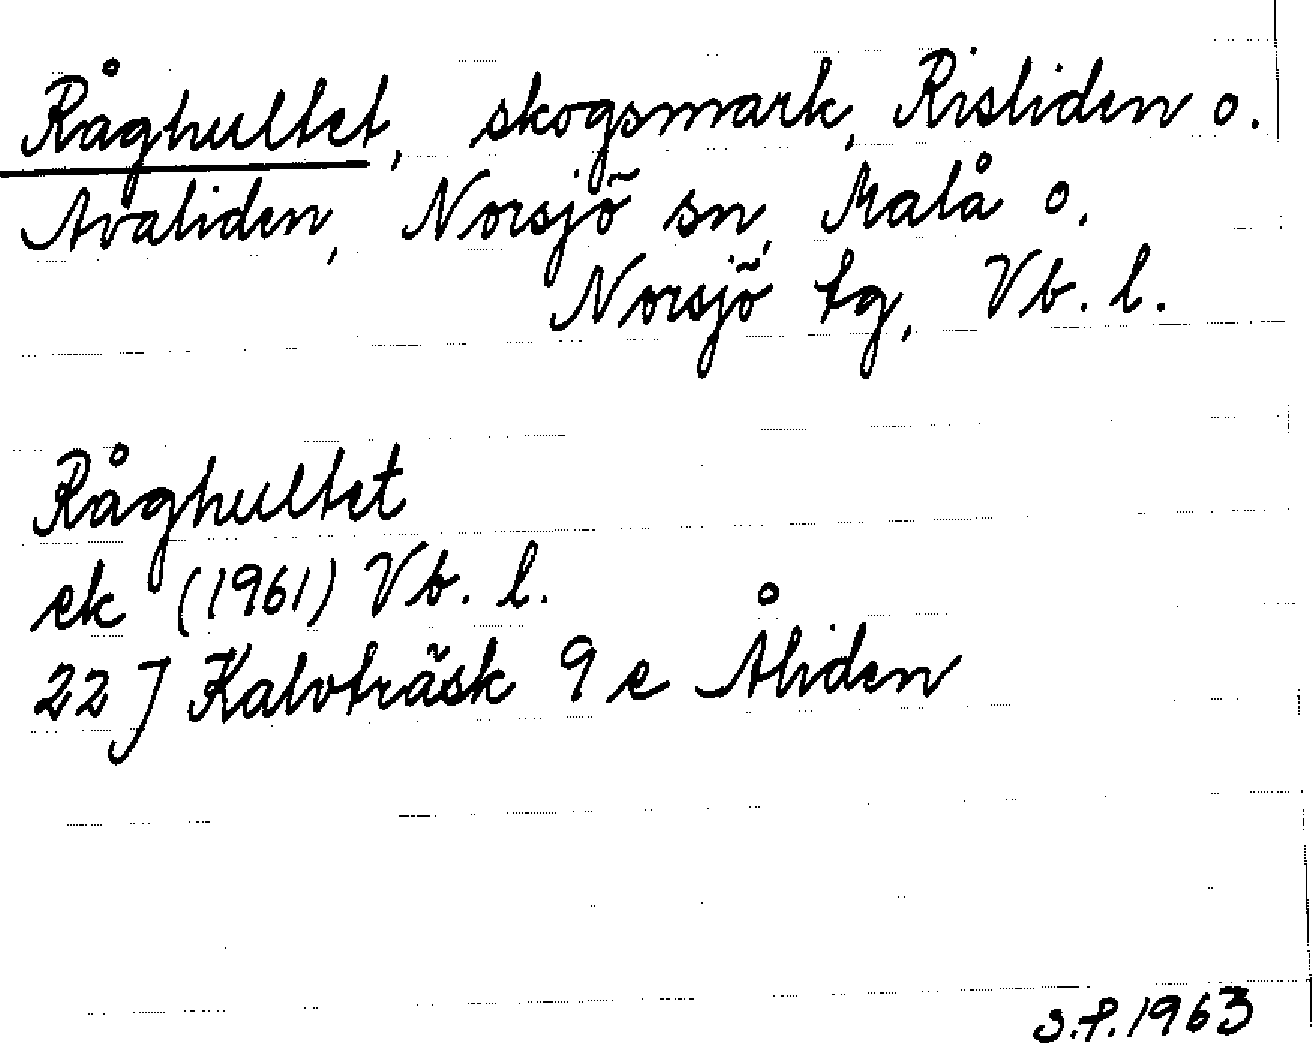 Råghultet, skogsmark, Risliden o.
Avaliden, Norsjö sn, Malå o.
Norsjö tg, Vb. l.
Råghultet
ek (1961) Vb. l.
22 J Kalvträsk 9 e Åliden
S.f. 1963